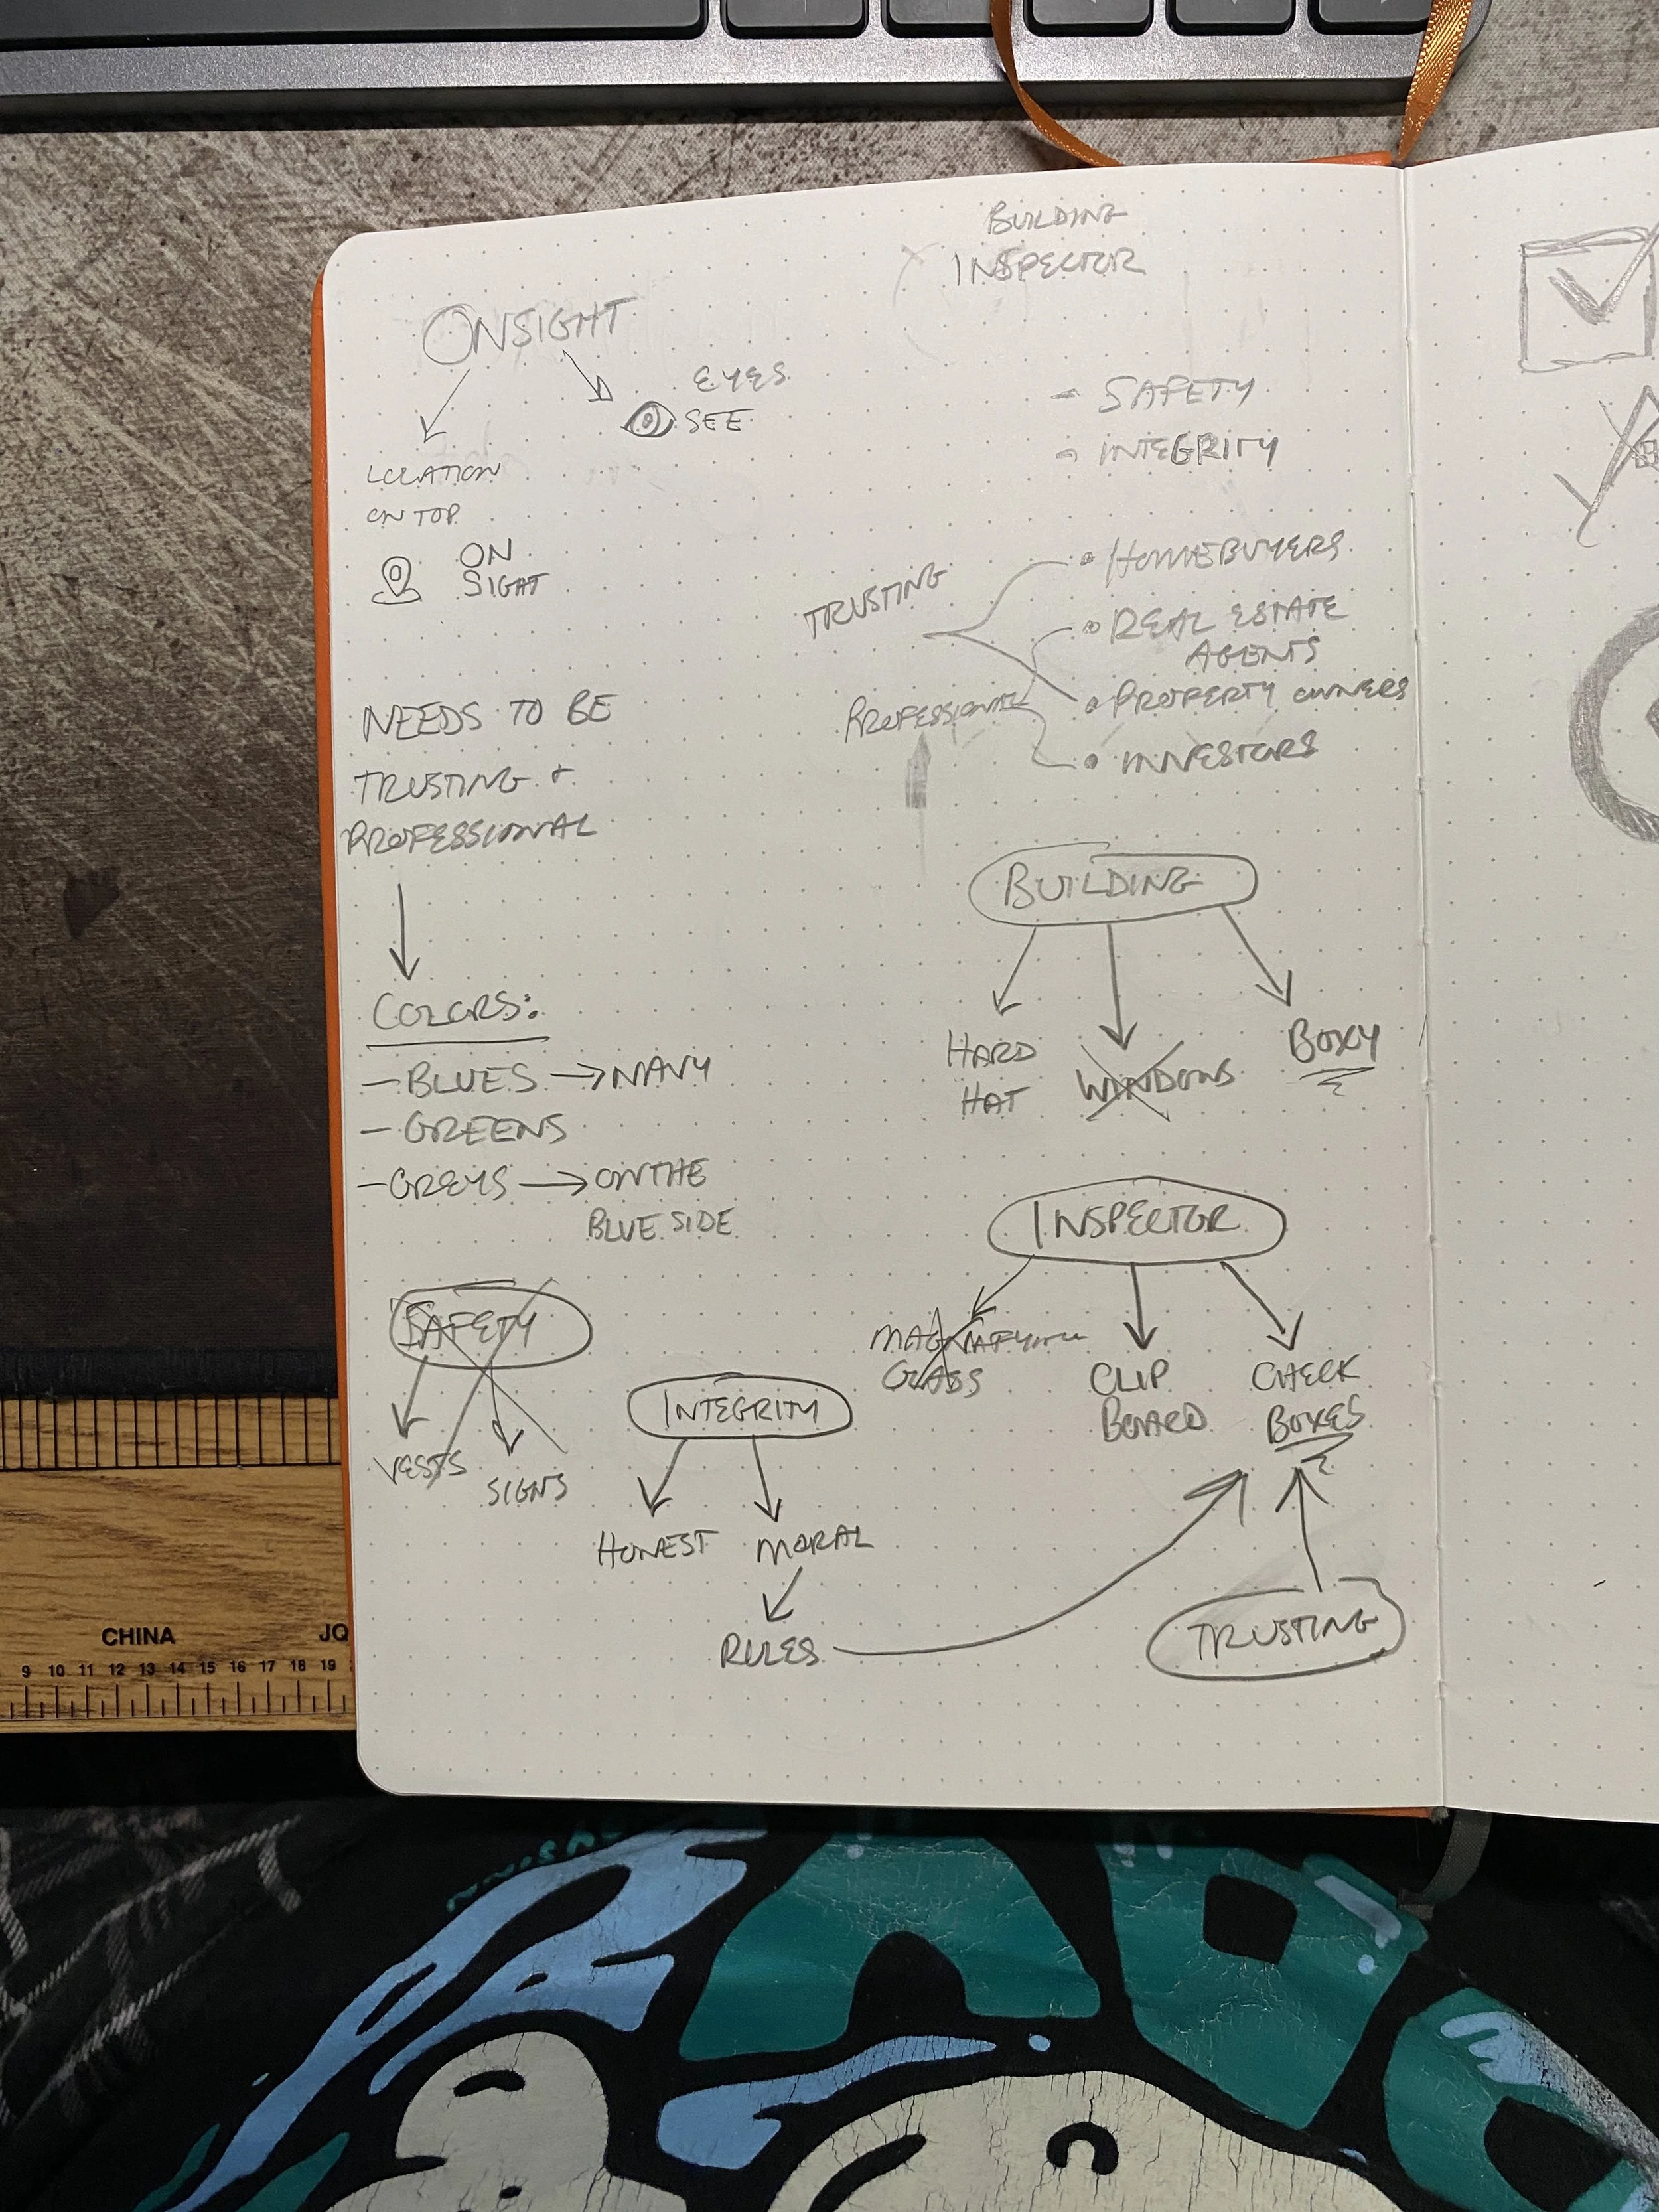 BUILDING
INSPECTOR
ONSIGHT
EYES
SEE
LOCATION
ON TOP
ON
SIGHT
- SAFETY
- INTEGRITY
TRUSTING
• HOMEBUYERS
• REAL ESTATE
AGENTS
PROFESSIONAL
• PROPERTY OWNERS
• INVESTORS
NEEDS TO BE
TRUSTING +
PROFESSIONAL
COLORS:
- BLUES → NAVY
- GREENS
- GREYS → ON THE
BLUE SIDE
BUILDING
HARD
HAT
WINDOWS
BOXY
INSPECTOR
MAGNIFYING
GLASS
CLIP
BOARD
CHECK
BOXES
SAFETY
VESTS
SIGNS
INTEGRITY
HONEST
MORAL
RULES
TRUSTING
CHINA
JQ
9 10 11 12 13 14 15 16 17 18 19